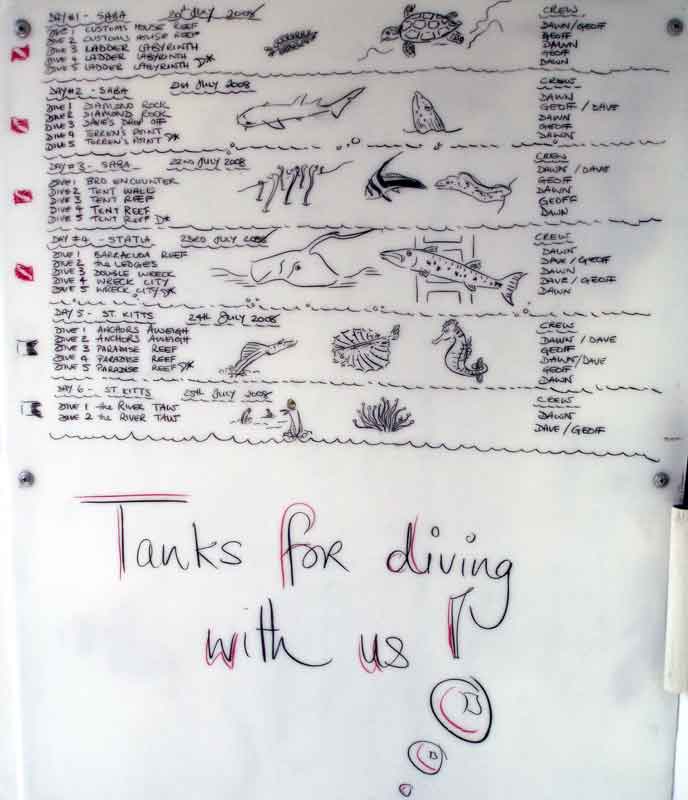 DAY #1 - SABA 20th JULY 2008 CREW
DIVE 1 CUSTOMS HOUSE REEF DAWN/GEOFF
DIVE 2 CUSTOMS HOUSE REEF GEOFF
DIVE 3 LADDER LABYRINTH DAWN
DIVE 4 LADDER LABYRINTH GEOFF
DIVE 5 LADDER LABYRINTH D* DAWN
DAY #2 - SABA 21st JULY 2008 CREW
DIVE 1 DIAMOND ROCK DAWN
DIVE 2 DIAMOND ROCK GEOFF / DAVE
DIVE 3 DAVE'S DROP OFF DAWN
DIVE 4 TORREN'S POINT GEOFF
DIVE 5 TORREN'S POINT D* DAWN
DAY #3 - SABA 22ND JULY 2008 CREW
DIVE 1 BRO ENCOUNTER DAWN / DAVE
DIVE 2 TENT WALL GEOFF
DIVE 3 TENT REEF DAWN
DIVE 4 TENT REEF GEOFF
DIVE 5 TENT REEF D* DAWN
DAY #4 - STATIA 23RD JULY 2008 CREW
DIVE 1 BARRACUDA REEF DAWN
DIVE 2 the LEDGES DAVE / GEOFF
DIVE 3 DOUBLE WRECK DAWN
DIVE 4 WRECK CITY DAVE / GEOFF
DIVE 5 WRECK CITY D* DAWN
DAY 5 - ST. KITTS 24th JULY 2008 CREW
DIVE 1 ANCHORS AWEIGH DAWN / DAVE
DIVE 2 ANCHORS AWEIGH GEOFF
DIVE 3 PARADISE REEF DAWN/DAVE
DIVE 4 PARADISE REEF GEOFF
DIVE 5 PARADISE REEF D* DAWN
DAY 6 - ST. KITTS 25th JULY 2008 CREW
DIVE 1 the RIVER TAW DAWN
DIVE 2 the RIVER TAW DAVE / GEOFF
Tanks for diving
with us !